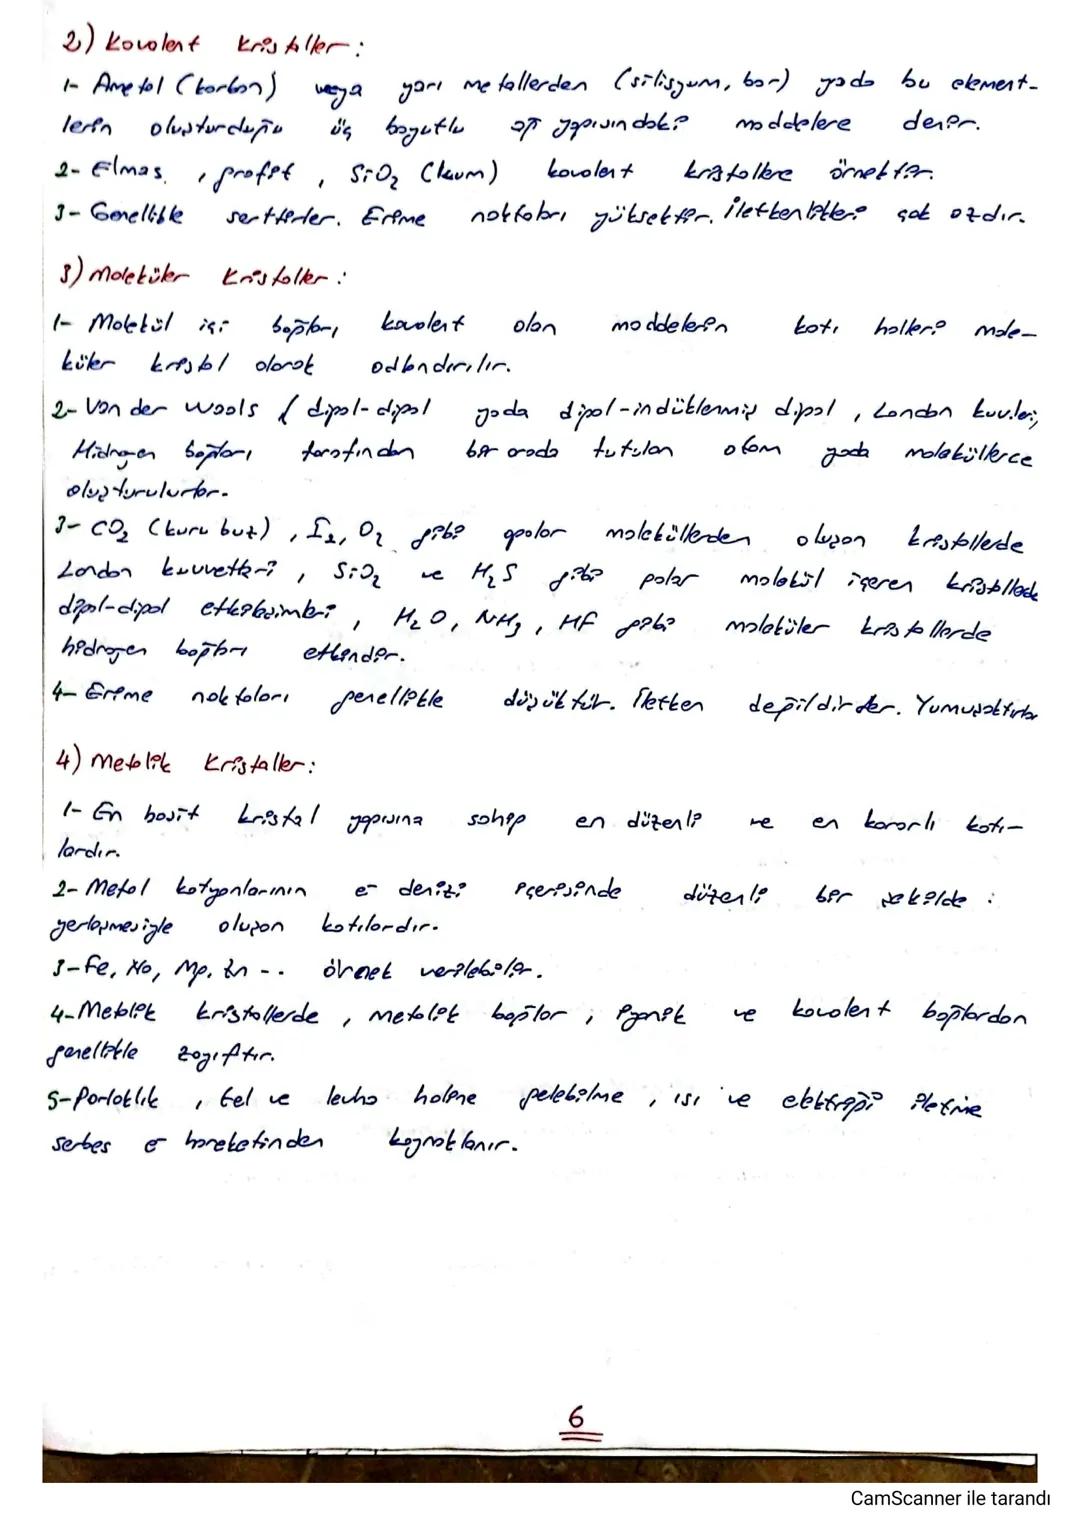 2) Kovalent Kristaller:
1- Ametal (karbon) veya yarı metallerden (silisyum, bor) yada bu element-
lerin oluşturduğu üç boyutlu ağ yapısındaki maddelere denir.
2- Elmas, grafit, SiO₂ (kum) kovalent kristallere örnektir.
3- Genellikle serttirler. Erime noktaları yüksektir. İletkenlikleri çok azdır.
3) Moleküler Kristaller:
1- Molekül içi bağları kovalent olan maddelerin katı halleri mole-
küler kristal olarak adlandırılır.
2- Van der waals ( dipol-dipol yada dipol-indüklenmiş dipol, London kuvleri,
Hidrogen bağları tarafından bir arada tutulan atom yada moleküllerce
oluşturulurlar.
3- CO₂ (kuru buz), I₂, O₂ gibi apolar moleküllerden oluşan kristallerde
London kuvvetleri, SiO₂ ve H₂S gibi polar molekül içeren kristallede
dipol-dipol etkileşimleri, H₂O, NH₃, HF gibi moleküler kristallerde
hidrogen bağları etkindir.
4- Erime noktaları genellikle düşüktür. İletken değildirler. Yumuşaktırlar
4) Metalik Kristaller:
1- En basit kristal yapısına sahip en düzenli ve en kararlı katı-
lardır.
2- Metal katyonlarının e- denizi içerisinde düzenli bir şekilde :
yerleşmesiyle oluşan katılardır.
3- Fe, Na, Mg, Zn -- örnek verilebilir.
4- Metalik kristallerde, metalik bağlar; iyonik ve kovalent bağlardan
genellikle zayıftır.
5- Parlaklık, tel ve levha haline gelebilme, ısı ve elektriği iletme
serbes e- hareketinden kaynaklanır.
6
CamScanner ile tarandı